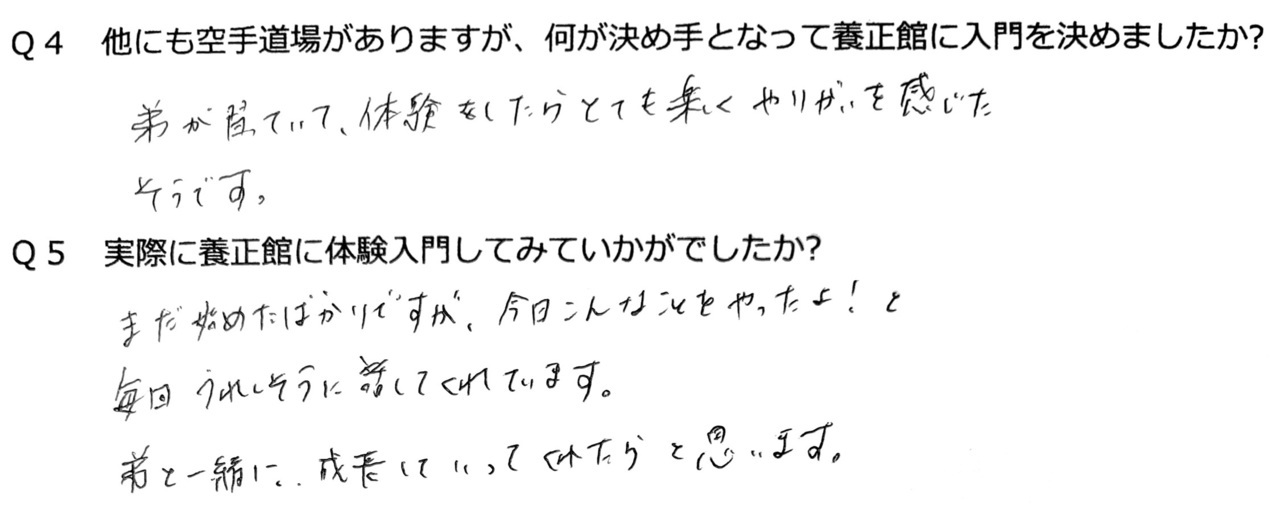 Q4 他にも空手道場がありますが、何が決め手となって養正館に入門を決めましたか?
弟が習ていて、体験をしたらとても楽しくやりがいを感じた
そうです。
Q5 実際に養正館に体験入門してみていかがでしたか?
まだ始めたばかりですが、今日こんなことをやったよ!と
毎回うれしそうに話してくれています。
弟と一緒に、成長していってくれたらと思います。